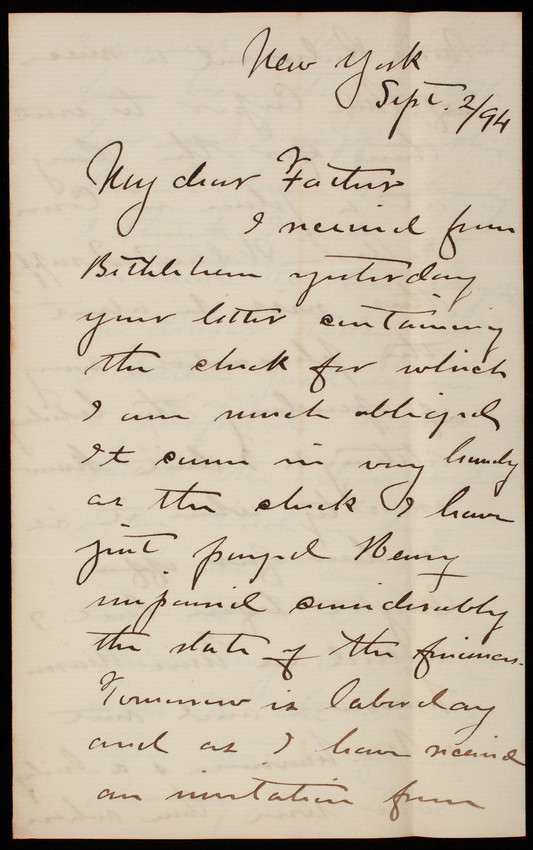 New York
Sept. 2/94
My dear Father
I received from
Bethlehem yesterday
your letter containing
the check for which
I am much obliged
It came in very handy
as the check I have
just payed Henry
impaired considerably
the state of the finances.
Tomorrow is labor day
and as I have received
an invitation from